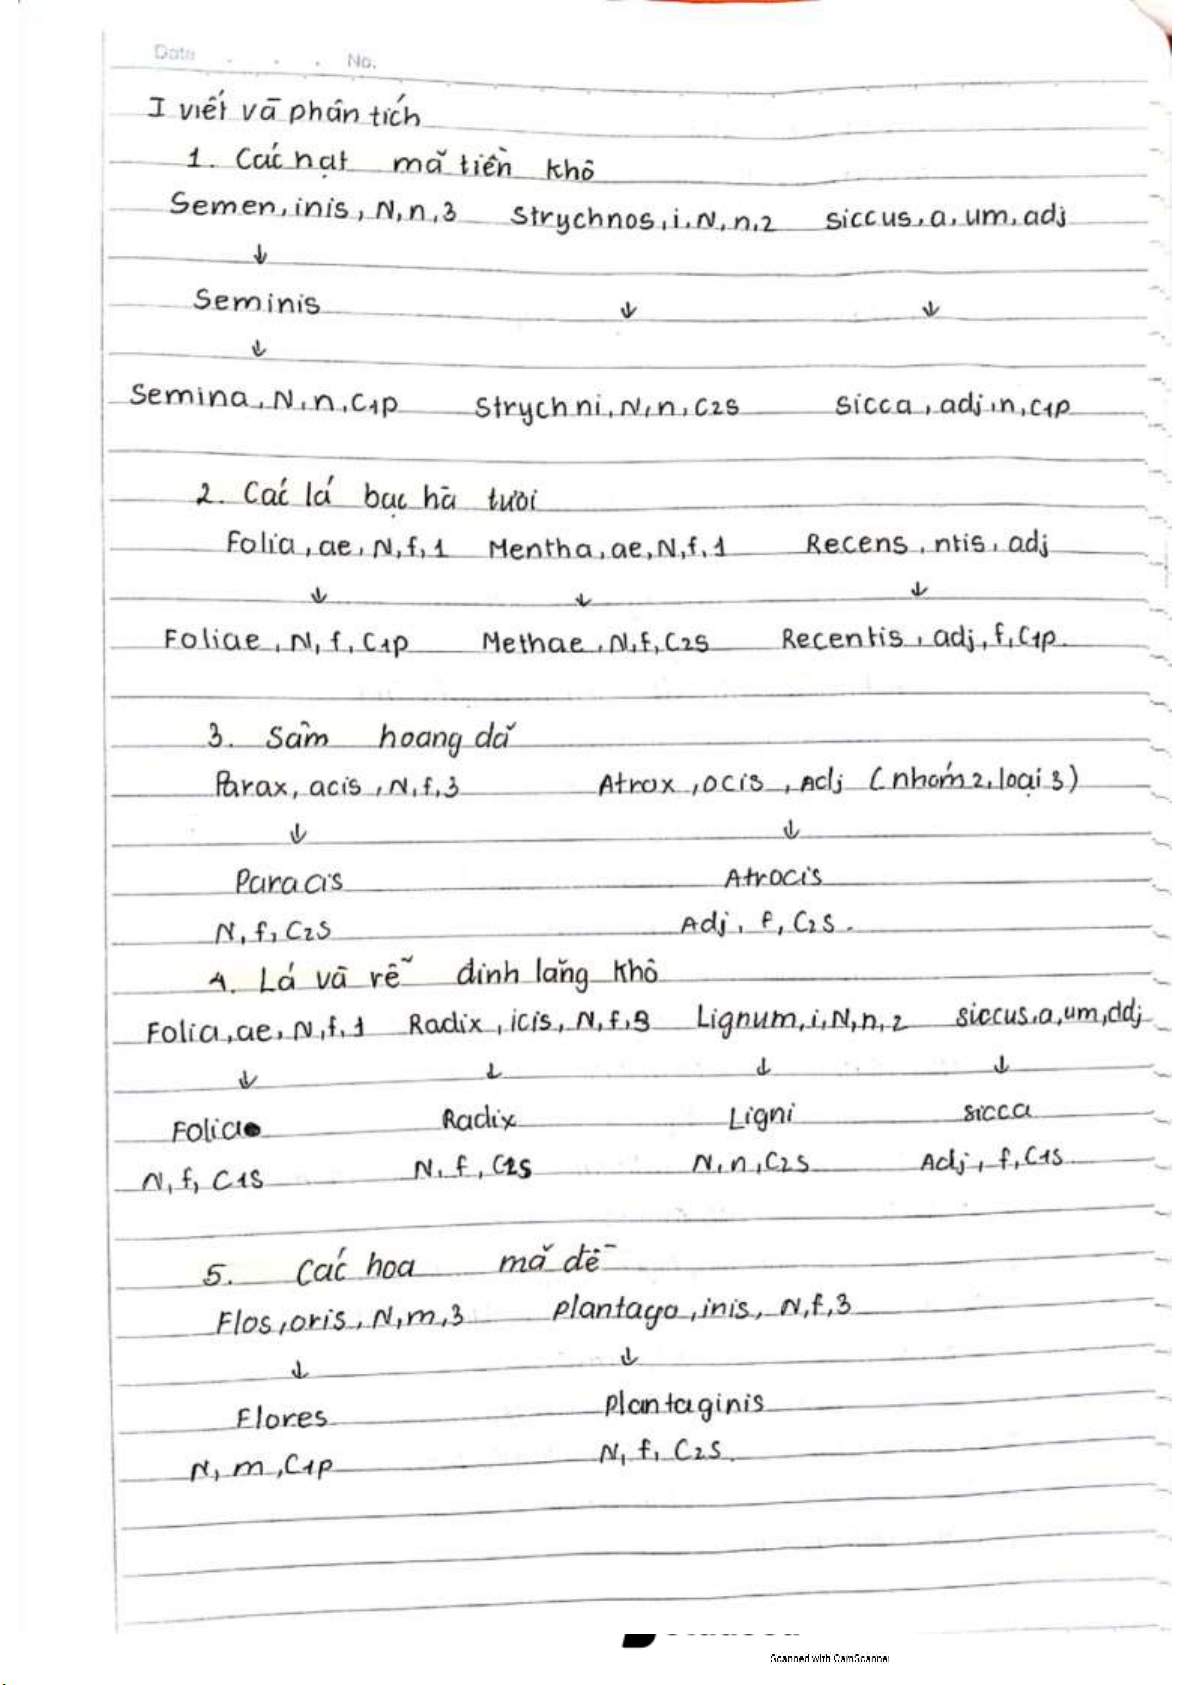 Date . . . No.
I viết và phân tích
1. Các hạt mã tiền khô
Semen, inis, N, n, 3 Strychnos, i, N, n, 2 siccus, a, um, adj
↓
Seminis ↓ ↓
↓
Semina, N, n, C1p Strychni, N, n, C2s Sicca, adj, n, C1p
2. Các lá bạc hà tươi
Folia, ae, N, f, 1 Mentha, ae, N, f, 1 Recens, ntis, adj
↓ ↓ ↓
Foliae, N, f, C1p Methae, N, f, C2s Recentis, adj, f, C1p.
3. Sâm hoang dã
Parax, acis, N, f, 3 Atrox, ocis, Adj (nhóm 2, loại 3)
↓ ↓
Paracis Atrocis
N, f, C2s Adj, f, C2s.
4. Lá và rễ đinh lăng khô
Folia, ae, N, f, 1 Radix, icis, N, f, 3 Lignum, i, N, n, 2 siccus, a, um, ddj
↓ ↓ ↓ ↓
Folia Radix Ligni sicca
N, f, C1s N, f, C1s N, n, C2s Adj, f, C1s
5. Các hoa mã đề
Flos, oris, N, m, 3 plantago, inis, N, f, 3
↓ ↓
Flores plantaginis
N, m, C1p N, f, C2s.
Scanned with CamScanner